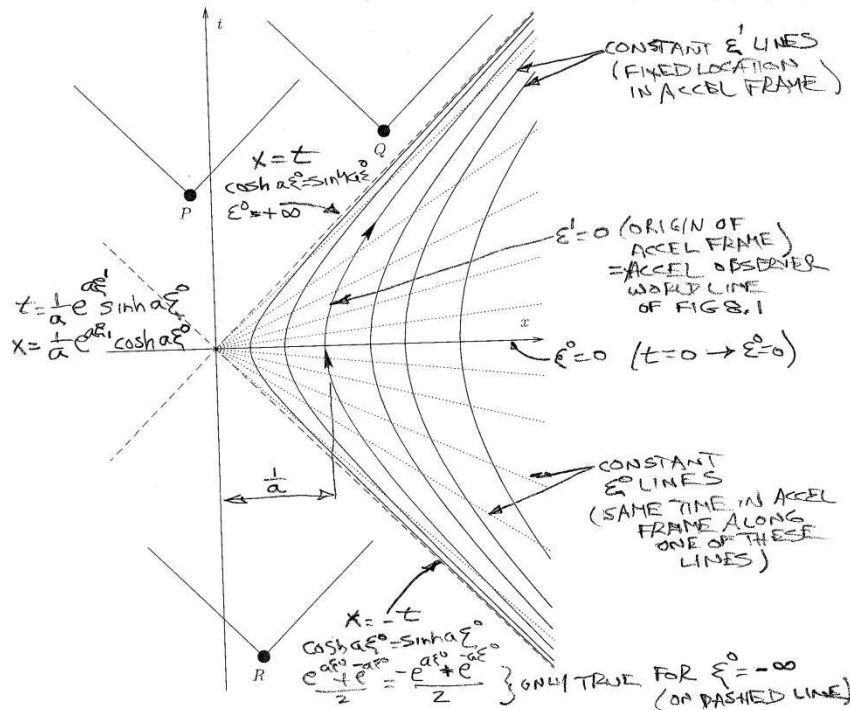 t
CONSTANT ξ¹ LINES
(FIXED LOCATION
IN ACCEL FRAME)
Q
x = t
cosh aξ⁰ = sinh aξ⁰
ξ⁰ = +∞
P
ξ¹=0 (ORIGIN OF
ACCEL FRAME)
= ACCEL OBSERVER
WORLD LINE
OF FIG 8.1
t = 1/a e^{aξ¹} sinh aξ⁰
x = 1/a e^{aξ¹} cosh aξ⁰
x
ξ⁰=0 (t=0 → ξ⁰=0)
1/a
CONSTANT
ξ⁰ LINES
(SAME TIME IN ACCEL
FRAME ALONG
ONE OF THESE
LINES)
x = -t
cosh aξ⁰ = sinh aξ⁰
R
(e^{aξ⁰} + e^{-aξ⁰})/2 = (-e^{aξ⁰} + e^{-aξ⁰})/2 } ONLY TRUE FOR ξ⁰ = -∞
(ON DASHED LINE)